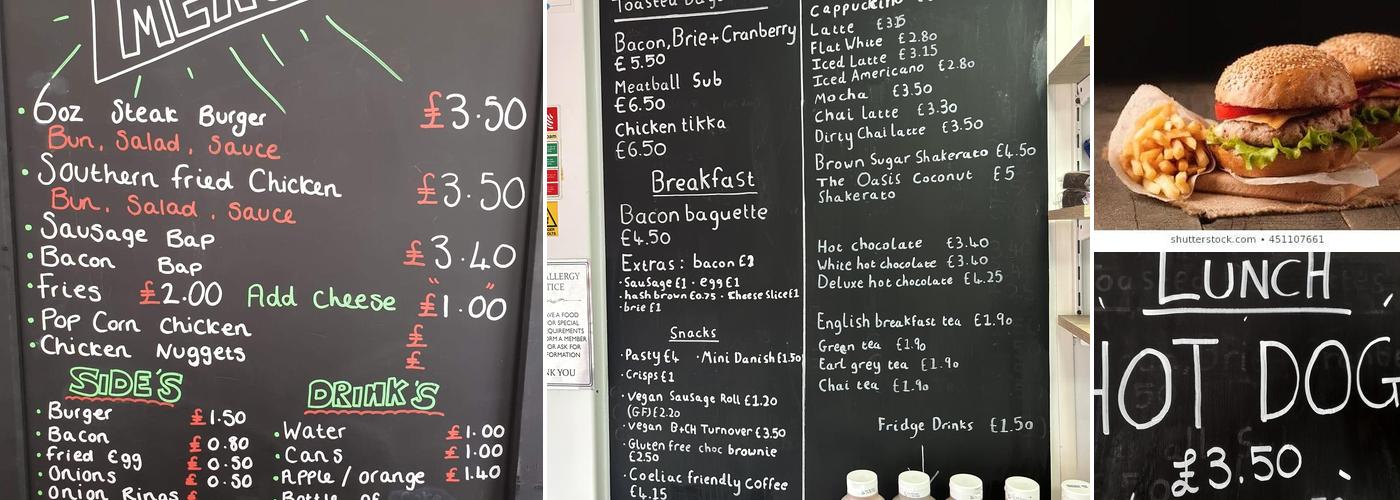 MENU
6oz Steak Burger £3.50
Bun, Salad, Sauce
Southern fried Chicken £3.50
Bun, Salad, Sauce
Sausage Bap £3.40
Bacon Bap " "
Fries £2.00 Add cheese £1.00
Pop Corn Chicken £
Chicken Nuggets £
SIDE'S
Burger £1.50
Bacon £0.80
fried Egg £0.50
Onions £0.50
Onion Rings £
DRINK'S
Water £1.00
Cans £1.00
Apple / orange £1.40
Bottle of
Toasted
Bacon, Brie + Cranberry
£5.50
Meatball Sub
£6.50
Chicken tikka
£6.50
Breakfast
Bacon baguette
£4.50
Extras: bacon £2
· Sausage £1 · egg £1
· hash brown £0.75 · Cheese Slice £1
· brie £1
Snacks
· Pasty £4 · Mini Danish £1.50
· Crisps £1
· Vegan Sausage Roll £1.20
(GF) £2.20
· vegan B+CH Turnover £3.50
· Gluten free choc brownie
£2.50
· Coeliac friendly Coffee
£4.15
Cappuccino
Latte £3.15
Flat White £2.80
Iced Latte £3.15
Iced Americano £2.80
Mocha £3.50
Chai latte £3.30
Dirty Chai latte £3.50
Brown Sugar Shakerato £4.50
The Oasis Coconut £5
Shakerato
Hot chocolate £3.40
White hot chocolate £3.40
Deluxe hot chocolate £4.25
English breakfast tea £1.90
Green tea £1.90
Earl grey tea £1.90
Chai tea £1.90
Fridge Drinks £1.50
ALLERGY
FOR SPECIAL
OR ASK FOR
INFORMATION
shutterstock.com • 451107661
LUNCH
HOT DOG
£3.50